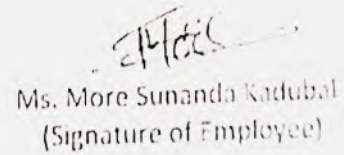 Ms. More Sunanda Kadubal
(Signature of Employee)